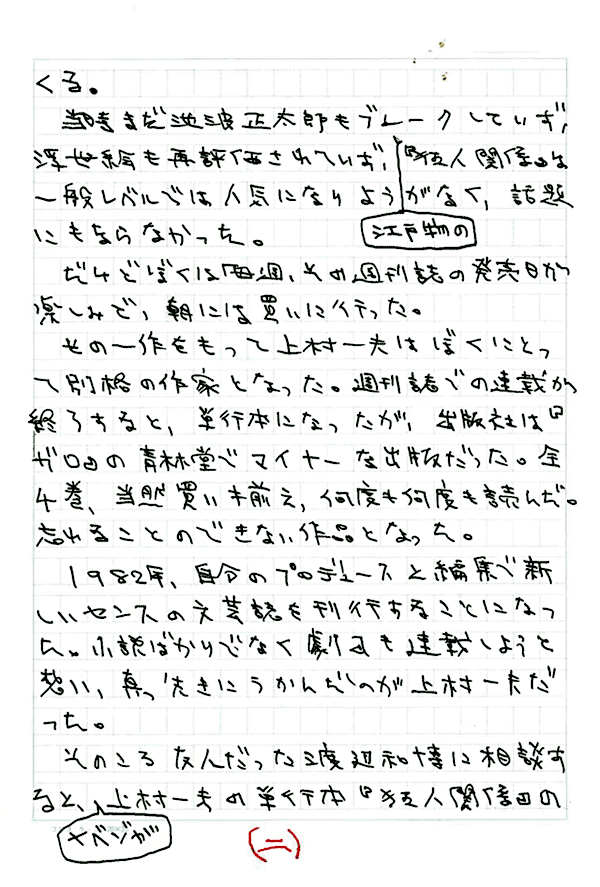 くる。
当時まだ池波正太郎もブレークしていず、
浮世絵も再評価されていず、『狂人関係』は
一般レベルでは人気になりようがなく、話題
江戸物の
にもならなかった。
だけどぼくは毎週、その週刊誌の発売日が
楽しみで、朝には買いに行った。
その一作をもって上村一夫はぼくにとっ
て別格の作家となった。週刊誌での連載が
終了すると、単行本になったが、出版社は『
ガロ』の青林堂でマイナーな出版だった。全
4巻、当然買い揃え、何度も何度も読んだ。
忘れることのできない作品となった。
1982年、自分のプロデュースと編集で新
しいセンスの文芸誌を刊行することになっ
た。小説ばかりでなく劇画も連載しようと
想い、真っ先きにうかんだのが上村一夫だ
った。
そのころ友人だった渡辺和博に相談す
ると、上村一夫の単行本『狂人関係』の
ナベゾが
(二)